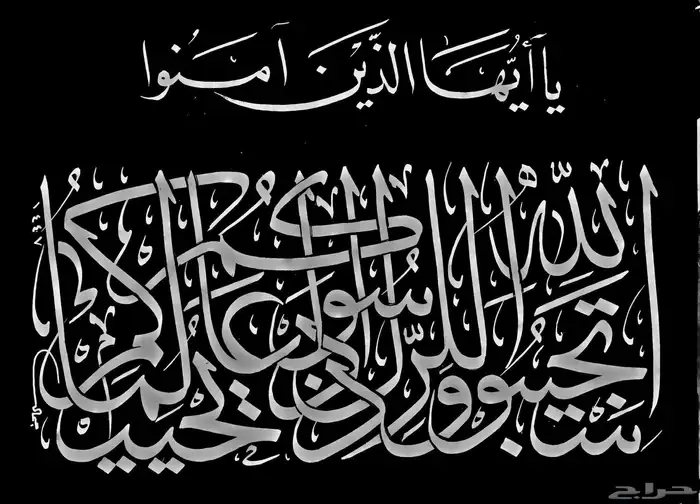 يَا أَيُّهَا الَّذِينَ آمَنُوا
اسْتَجِيبُوا لِلَّهِ وَلِلرَّسُولِ إِذَا دَعَاكُمْ لِمَا يُحْيِيكُمْ
حراج